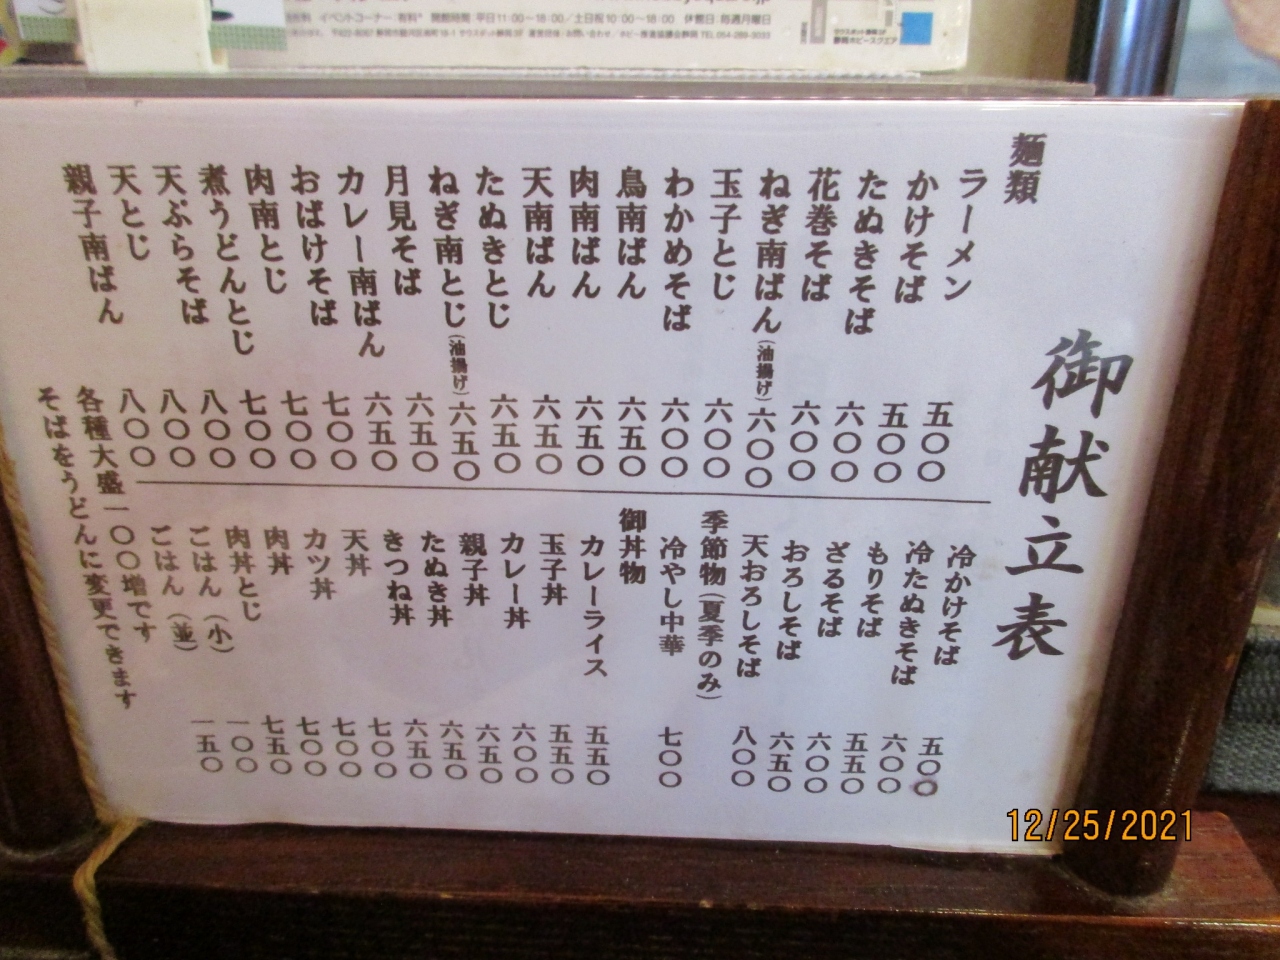 イベントコーナー:有料* 開館時間:平日11:00~18:00/土日祝10:00~18:00 休館日:毎週月曜日
御献立表
麺類
ラーメン 五〇〇
かけそば 五〇〇
たぬきそば 六〇〇
花巻そば 六〇〇
ねぎ南ばん(油揚げ) 六〇〇
玉子とじ 六〇〇
わかめそば 六〇〇
鳥南ばん 六五〇
肉南ばん 六五〇
天南ばん 六五〇
たぬきとじ 六五〇
ねぎ南とじ(油揚げ) 六五〇
月見そば 六五〇
カレー南ばん 六五〇
おばけそば 七〇〇
肉南とじ 七〇〇
煮うどんとじ 七〇〇
天ぷらそば 八〇〇
天とじ 八〇〇
親子南ばん 八〇〇
冷かけそば 五〇〇
冷たぬきそば 六〇〇
もりそば 五五〇
ざるそば 六〇〇
おろしそば 六五〇
天おろしそば 八〇〇
季節物(夏季のみ)
冷やし中華 七〇〇
御丼物
カレーライス 五五〇
玉子丼 五五〇
カレー丼 六〇〇
親子丼 六五〇
たぬき丼 六五〇
きつね丼 六五〇
天丼 七〇〇
カツ丼 七〇〇
肉丼 七〇〇
肉丼とじ 七五〇
ごはん(小) 一〇〇
ごはん(並) 一五〇
各種大盛一〇〇増です
そばをうどんに変更できます
12/25/2021